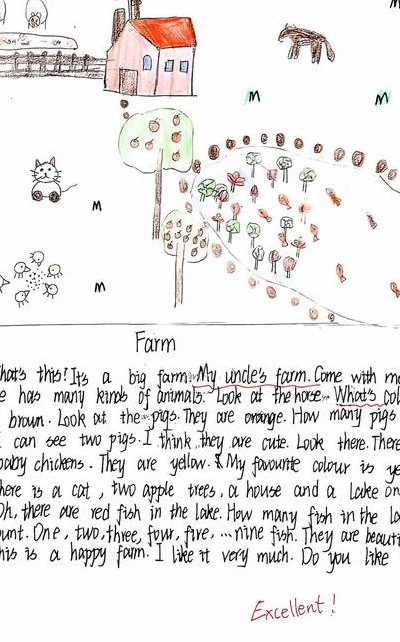 Farm
hat's this! It's a big farm. My uncle's farm. Come with me
e has many kinds of animals. Look at the horse. What's col
brown. Look at the pigs. They are orange. How many pigs
can see two pigs. I think they are cute. Look there. There
baby chickens. They are yellow. My favourite colour is ye
here is a cat, two apple trees, a house and a lake on
Oh, there are red fish in the lake. How many fish in the la
ount. One, two, three, four, five, ...nine fish. They are beauti
his is a happy farm. I like it very much. Do you like
Excellent!